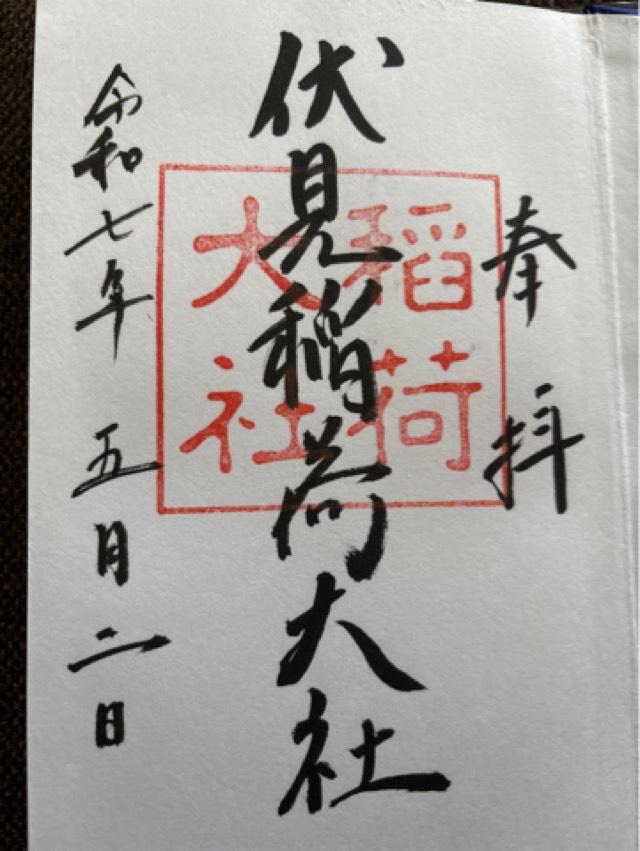 奉拝
伏見稲荷大社
稲荷
大社
令和七年 五月二日